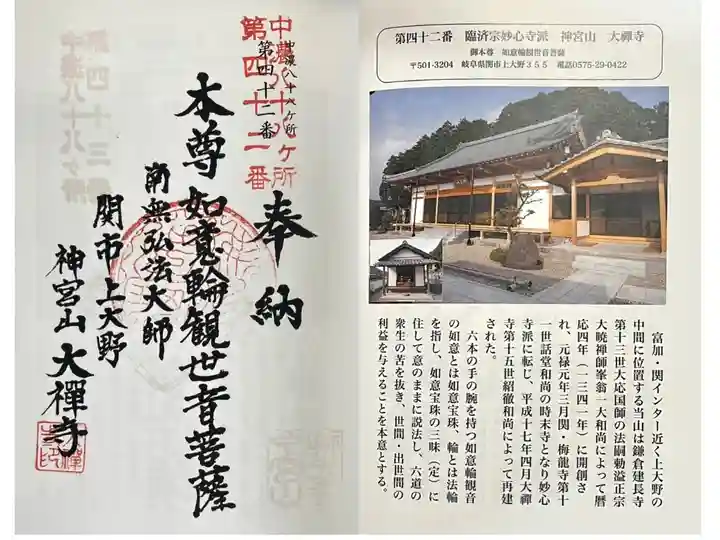 中濃八十八ケ所
第四十二番
中濃八十八ヶ所
第四十二番
奉納
本尊如意輪観世音菩薩
南無弘法大師
関市上大野
神宮山大禅寺
第四十二番 臨済宗妙心寺派 神宮山 大禅寺
御本尊 如意輪観世音菩薩
〒501-3204 岐阜県関市上大野355 電話0575-29-0422
富加・関インター近く上大野の
中間に位置する当山は鎌倉建長寺
第十三世大応国師の法嗣勅諡正宗
大暁禅師峯翁一大和尚によって暦
応四年(一三四一年)に開創さ
れ、元禄元年三月関・梅龍寺第十
一世話堂和尚の時末寺となり妙心
寺派に転じ、平成十七年四月大禅
寺第十五世紹徹和尚によって再建
された。
六本の手の腕を持つ如意輪観音
の如意とは如意宝珠、輪とは法輪
を指し、如意宝珠の三昧(定)に
住して意のままに説法し、六道の
衆生の苦を抜き、世間・出世間の
利益を与えることを本意とする。